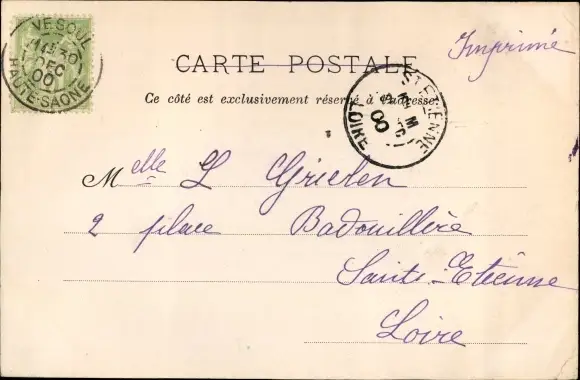 VESOUL
DEC
00
HAUTE-SAONE
Imprimé
CARTE POSTALE
Ce côté est exclusivement réservé à l'adresse
ST ETIENNE
00
LOIRE
Melle L Grielen
2 place Badouillère
Sainte-Etienne
Loire